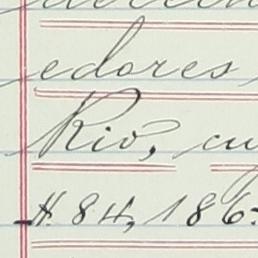 edores
Rio, cu
H. 84, 186